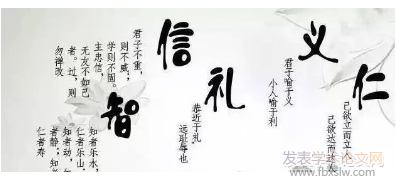 仁
己欲立而立人
己欲达而达人
义
君子喻于义
小人喻于利
礼
恭近于礼，
远耻辱也
信
君子不重，
则不威；
学则不固。
主忠信，
无友不如己
者。过，则
勿惮改
智
知者乐水，
仁者乐山；
知者动，仁
者静；知
仁者寿
发表学术论文网
www.fbxslw.com